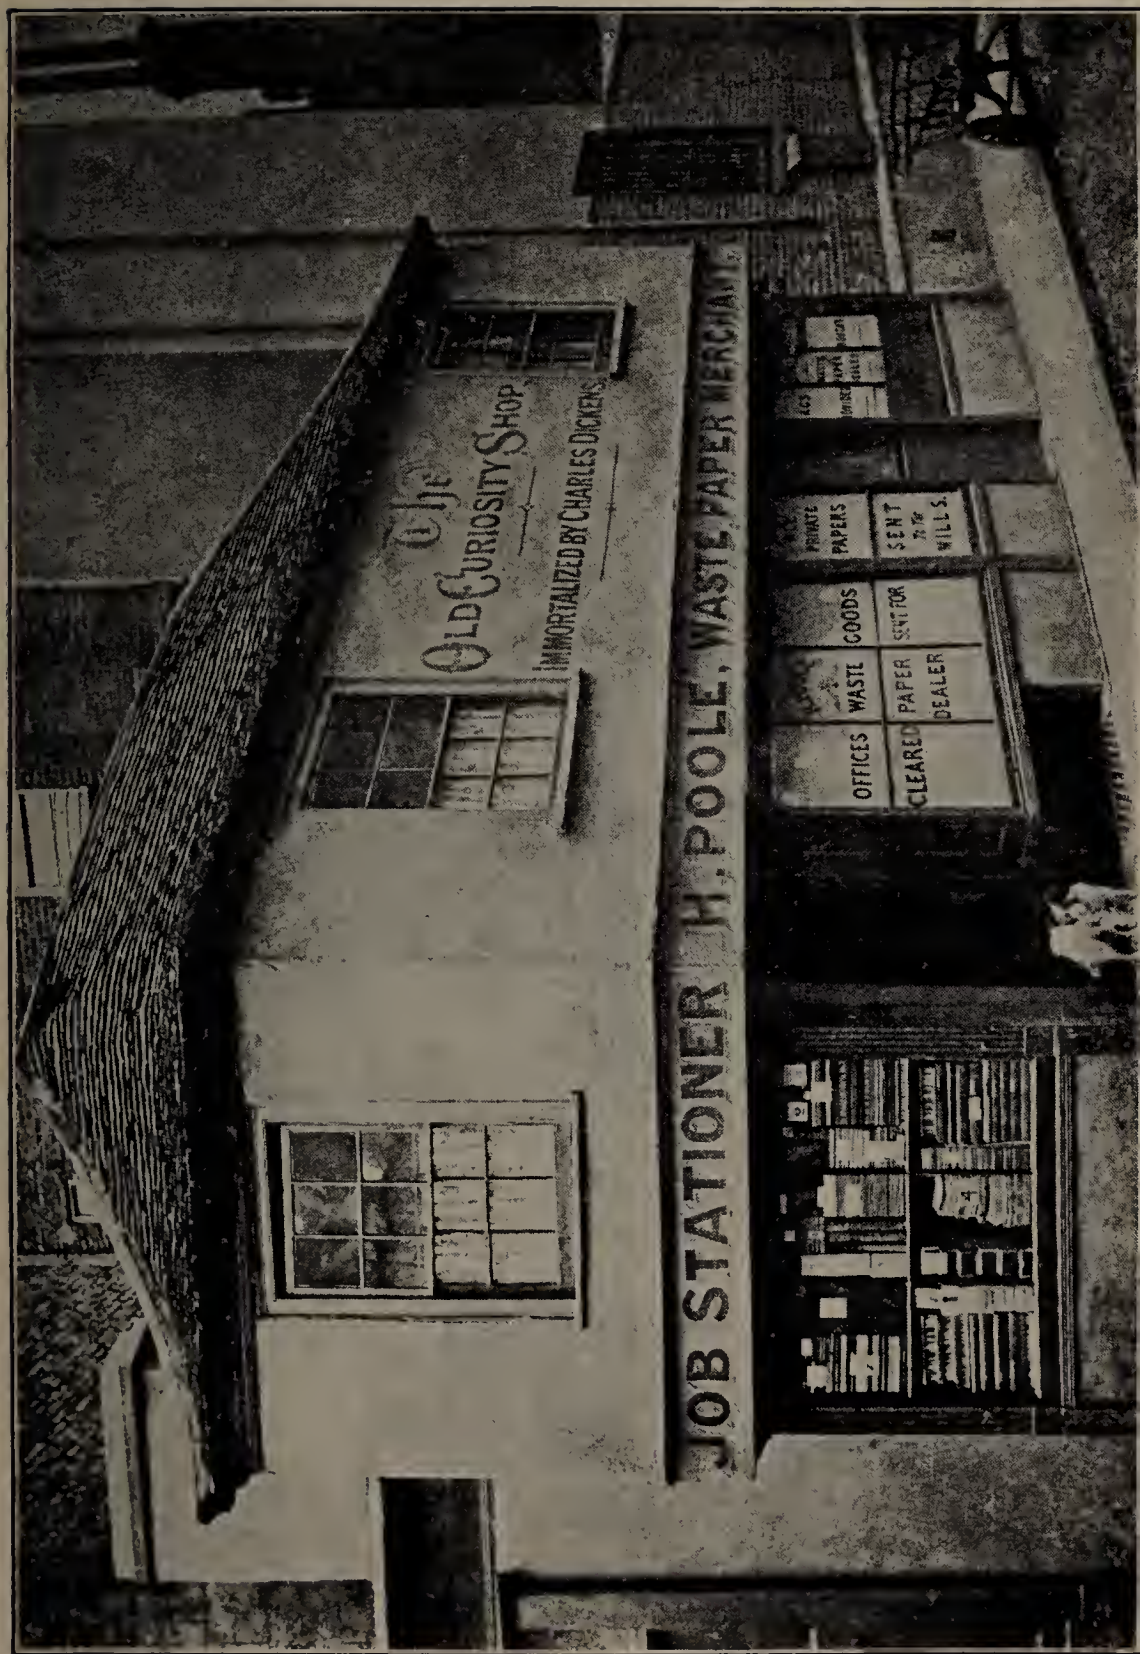 The
OLD CURIOSITY SHOP
IMMORTALIZED BY CHARLES DICKENS
JOB STATIONER H. POOLE, WASTE PAPER MERCHANT.
OFFICES
CLEARED
WASTE
PAPER
DEALER
GOODS
SENT FOR
PRIVATE
PAPERS
SENT
TO THE
MILLS.